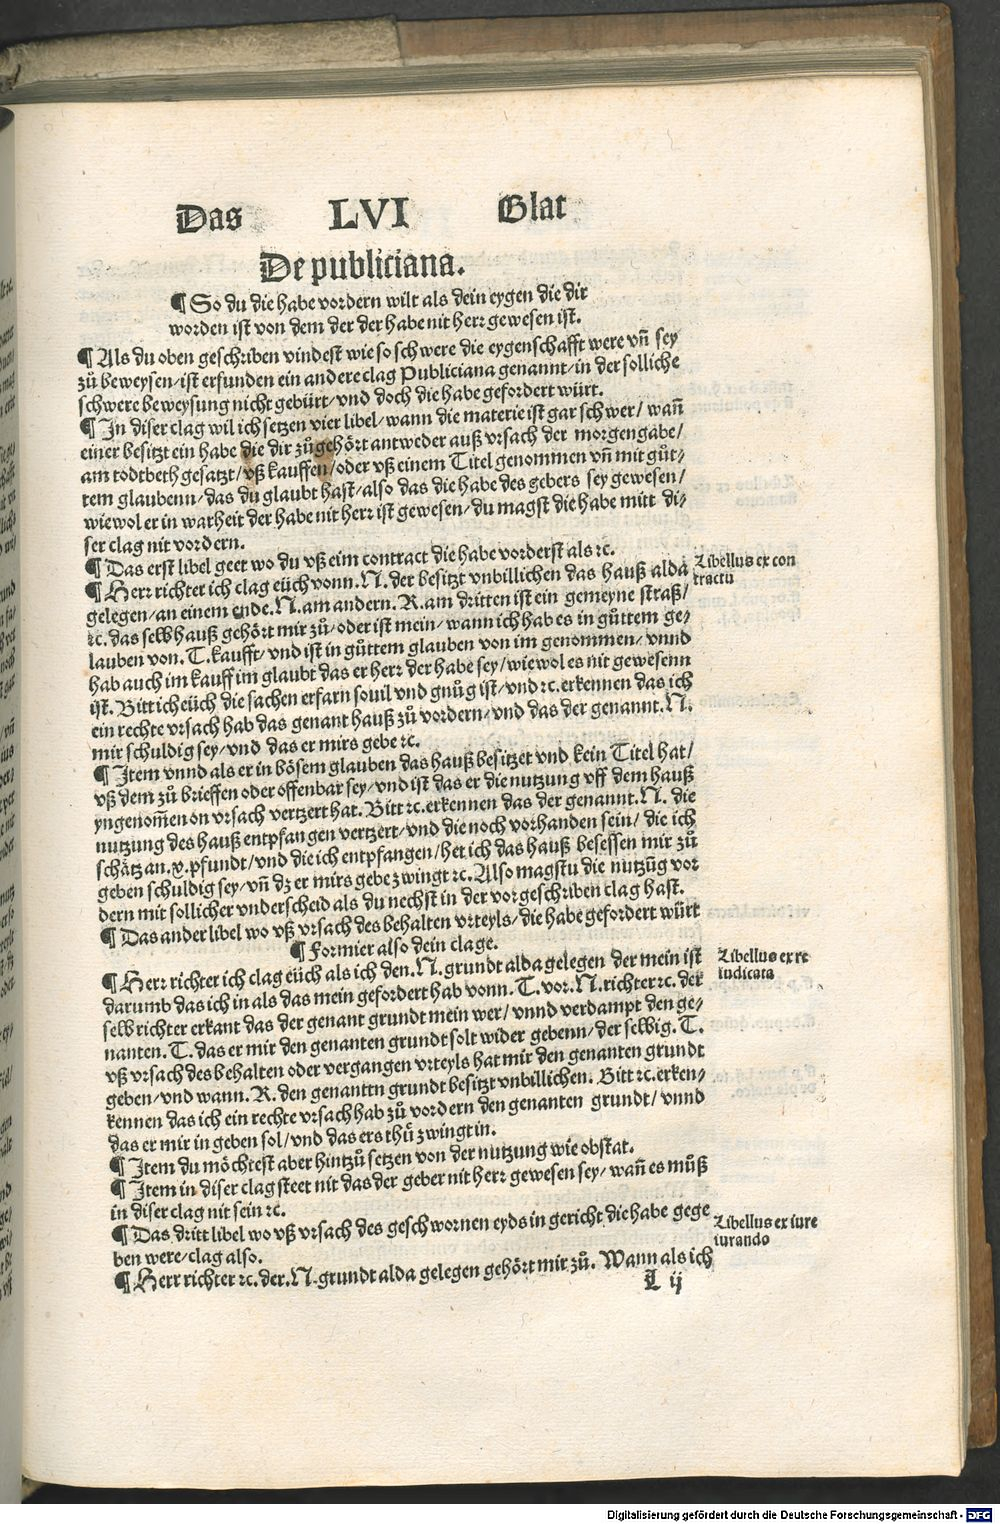 Das LVI Blat
De publiciana.
¶ So du die habe vordern wilt als dein eygen die dir
worden ist von dem der der habe nit herr gewesen ist.
¶ Als du oben geschriben vindest wie so schwere die eygenschafft were vñ sey
zů beweysen/ist erfunden ein andere clag Publiciana genannt/in der solliche
schwere beweysung nicht gebürt/vnd doch die habe gefordert würt.
¶ In diser clag wil ich setzen vier libel/wann die materie ist gar schwer/wañ
einer besitzt ein habe die dir zůgehört antweder auß vrsach der morgengabe/
am todtbeth gesatzt/vß kauffen/oder vß einem Titel genommen vñ mit gůt⸗
tem glaubenn/das du glaubt hast/also das die habe des gebers sey gewesen/
wiewol er in warheit der habe nit herr ist gewesen/du magst die habe mitt di⸗
ser clag nit vordern.
¶ Das erst libel geet wo du vß eim contract die habe vorderst als ꝛc.
Libellus ex con
tractu
¶ Herr richter ich clag eüch vonn. N. der besitzt vnbillichen das hauß alda
gelegen/an einem ende. N. am andern. R. am dritten ist ein gemeyne straß/
ꝛc. das selb hauß gehört mir zů/oder ist mein/wann ich hab es in gůttem ge⸗
lauben von. T. kaufft/vnd ist in gůttem glauben von im genommen/vnnd
hab auch im kauff im glaubt das er herr der habe sey/wiewol es nit gewesenn
ist. Bitt ich eüch die sachen erfarn souil vnd gnůg ist/vnd ꝛc. erkennen das ich
ein rechte vrsach hab das genant hauß zů vordern/vnd das der genannt. N.
mir schuldig sey/vnd das er mirs gebe ꝛc.
¶ Item vnnd als er in bösem glauben das hauß besitzet vnd kein Titel hat/
vß dem zů brieffen oder offenbar sey/vnd ist das er die nutzung vff dem hauß
yngenom̃en on vrsach vertzert hat. Bitt ꝛc. erkennen das der genannt. N. die
nutzung des hauß entpfangen vertzert/vnd die noch vorhanden sein/die ich
schätz an. x. pfundt/vnd die ich entpfangen/het ich das hauß besessen mir zů
geben schuldig sey/vñ dz er mirs gebe zwingt ꝛc. Also magstu die nutzũg vor
dern mit sollicher vnderscheid als du nechst in der vorgeschriben clag hast.
¶ Das ander libel wo vß vrsach des behalten vrteyls/die habe gefordert würt
¶ Formier also dein clage.
Libellus ex re
iudicata
¶ Herr richter ich clag eüch als ich den. N. grundt alda gelegen der mein ist
darumb das ich in als das mein gefordert hab vonn. T. vor. N. richter ꝛc. der
selb richter erkant das der genant grundt mein wer/vnnd verdampt den ge⸗
nanten. T. das er mir den genanten grundt solt wider gebenn/der selbig. T.
vß vrsach des behalten oder vergangen vrteyls hat mir den genanten grundt
geben/vnd wann. R. den genanttn grundt besitzt vnbillichen. Bitt ꝛc. erken⸗
kennen das ich ein rechte vrsach hab zů vordern den genanten grundt/vnnd
das er mir in geben sol/vnd das ers thů zwingt in.
¶ Item du möchtest aber hintzů setzen von der nutzung wie obstat.
¶ Item in diser clag steet nit das der geber nit herr gewesen sey/wañ es můß
in diser clag nit sein ꝛc.
¶ Das dritt libel wo vß vrsach des geschwornen eyds in gericht die habe gege
ben were/clag also.
Libellus ex iure
iurando
¶ Herr richter ꝛc. der. N. grundt alda gelegen gehört mir zů. Wann als ich
L ij
Digitalisierung gefördert durch die Deutsche Forschungsgemeinschaft - DFG